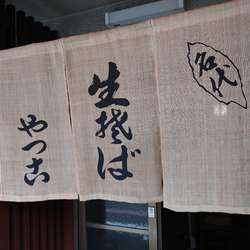 名代
生そば
やつこ